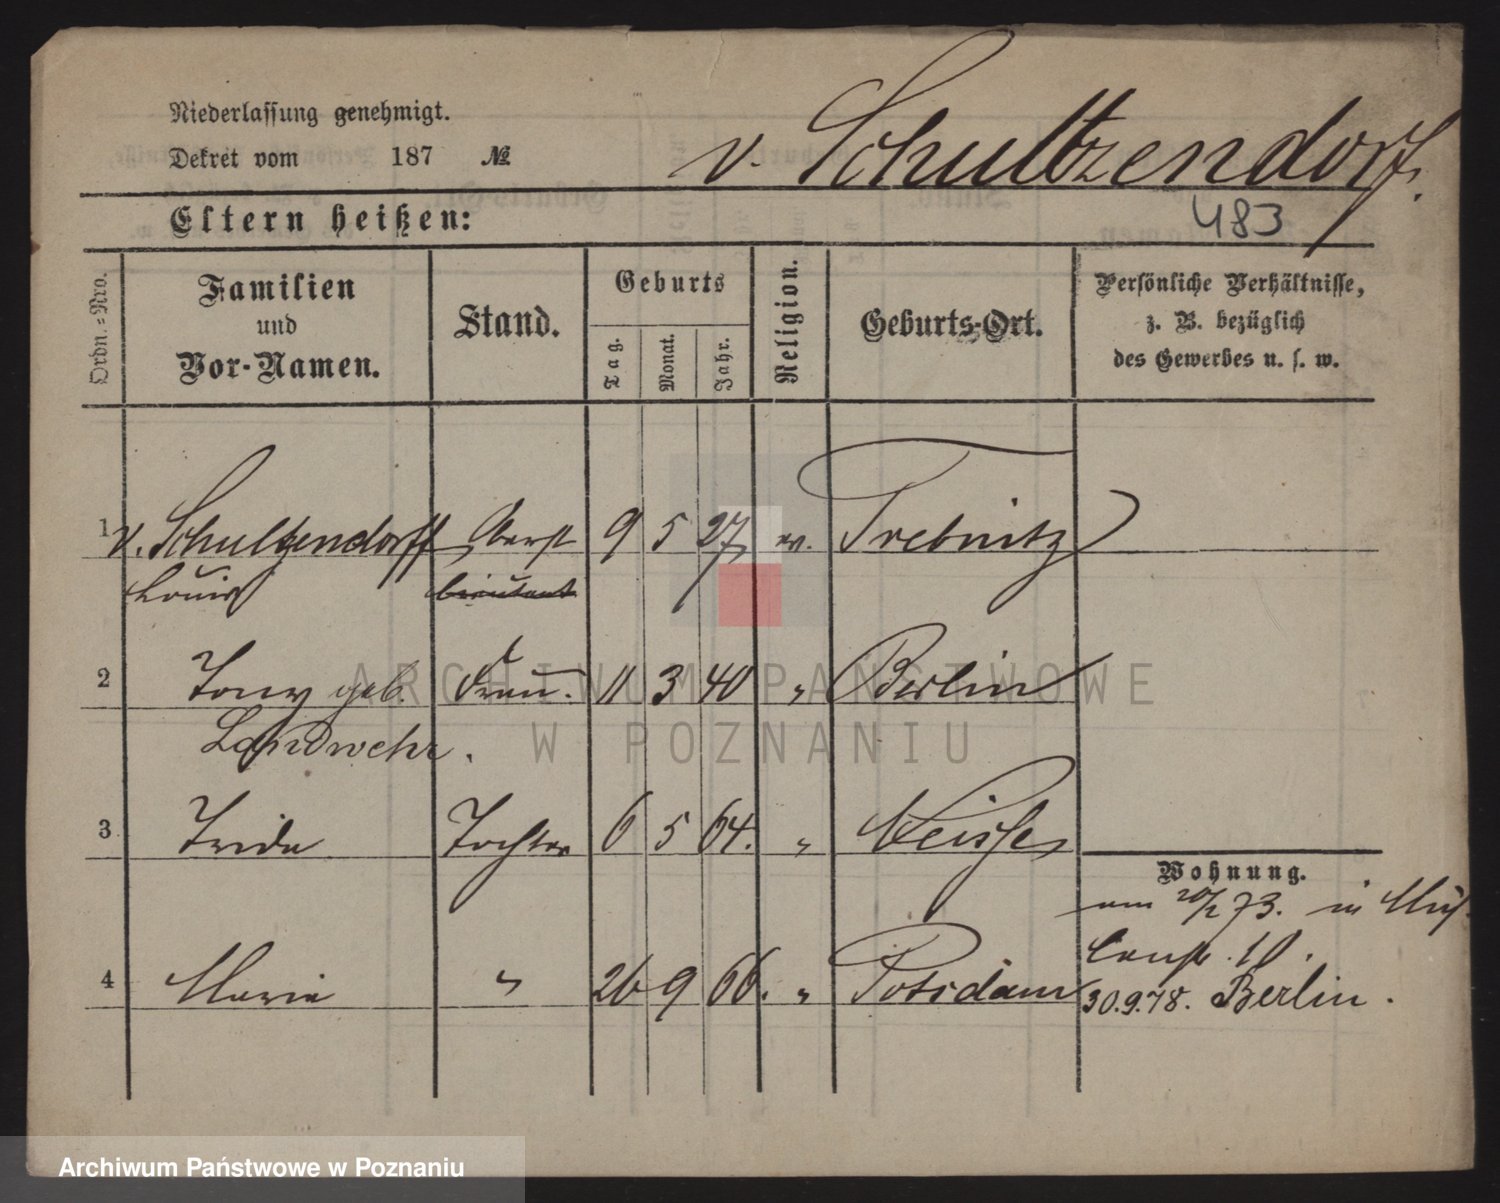 Niederlassung genehmigt.
Dekret vom 187 №
v. Schultzendorf.
483
Eltern heißen:
Ordn.=Nro.
Familien
und
Vor-Namen.
Stand.
Geburts
Tag.
Monat.
Jahr.
Religion.
Geburts-Ort.
Persönliche Verhältnisse,
z. B. bezüglich
des Gewerbes u. s. w.
1 v. Schultzendorff Oberst 9 5 27 ev. Trebnitz
Louis lieutenant
2 Tony geb. Frau. 11 3 40 " Berlin
Landwehr.
3 Frida Tochter 6 5 64. " Neisse
Wohnung.
am 20/2 73. in
4 Marie " 26 9 66. " Potsdam
30.9.78. Berlin.
ARCHIWUM PAŃSTWOWE
W POZNANIU
Archiwum Państwowe w Poznaniu